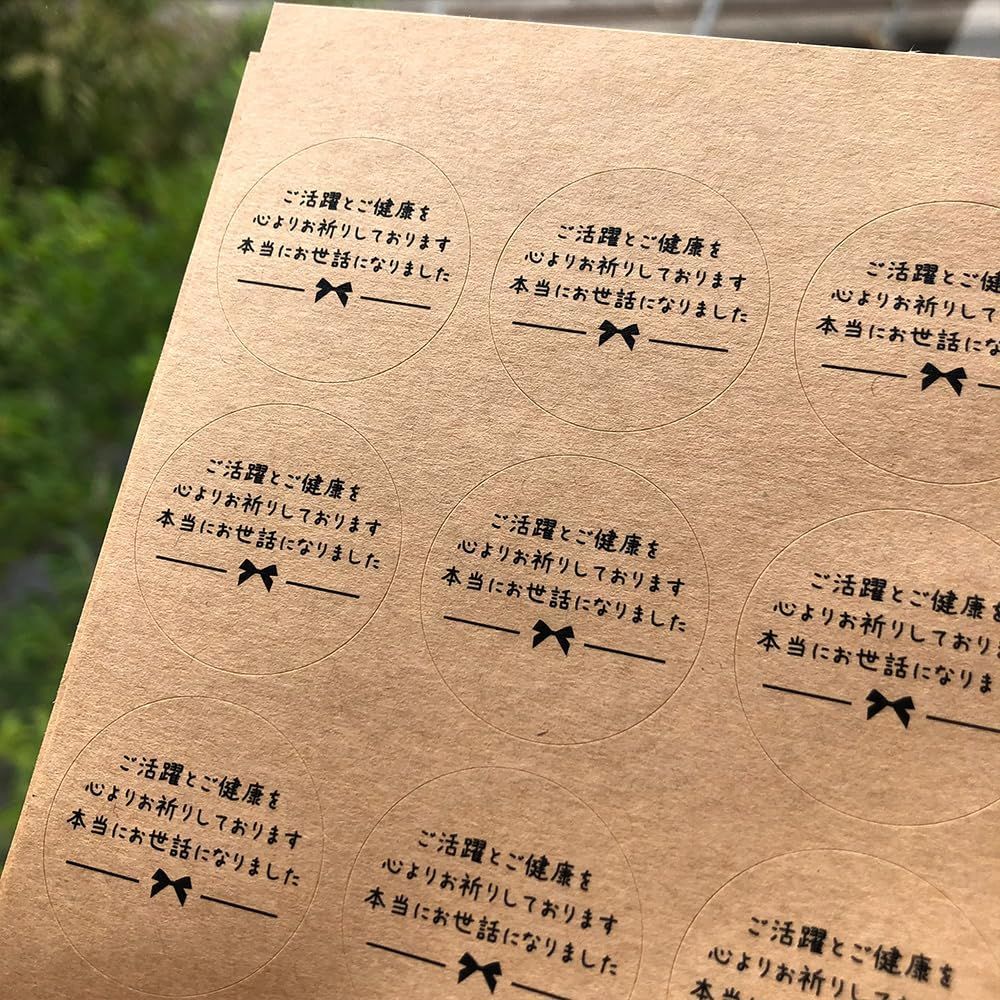 ご活躍とご健康を
心よりお祈りしております
本当にお世話になりました
ご活躍とご健康を
心よりお祈りしております
本当にお世話になりました
ご活躍とご健
心よりお祈りして
本当にお世話にな
ご活躍とご健康を
心よりお祈りしております
本当にお世話になりました
ご活躍とご健康を
心よりお祈りしております
本当にお世話になりました
ご活躍とご健康を
心よりお祈りしておりま
本当にお世話になりま
ご活躍とご健康を
心よりお祈りしております
本当にお世話になりました
ご活躍とご健康を
心よりお祈りしております
本当にお世話になりました
ご活躍とご健康を
心よりお祈りしております
本当にお世話になりました